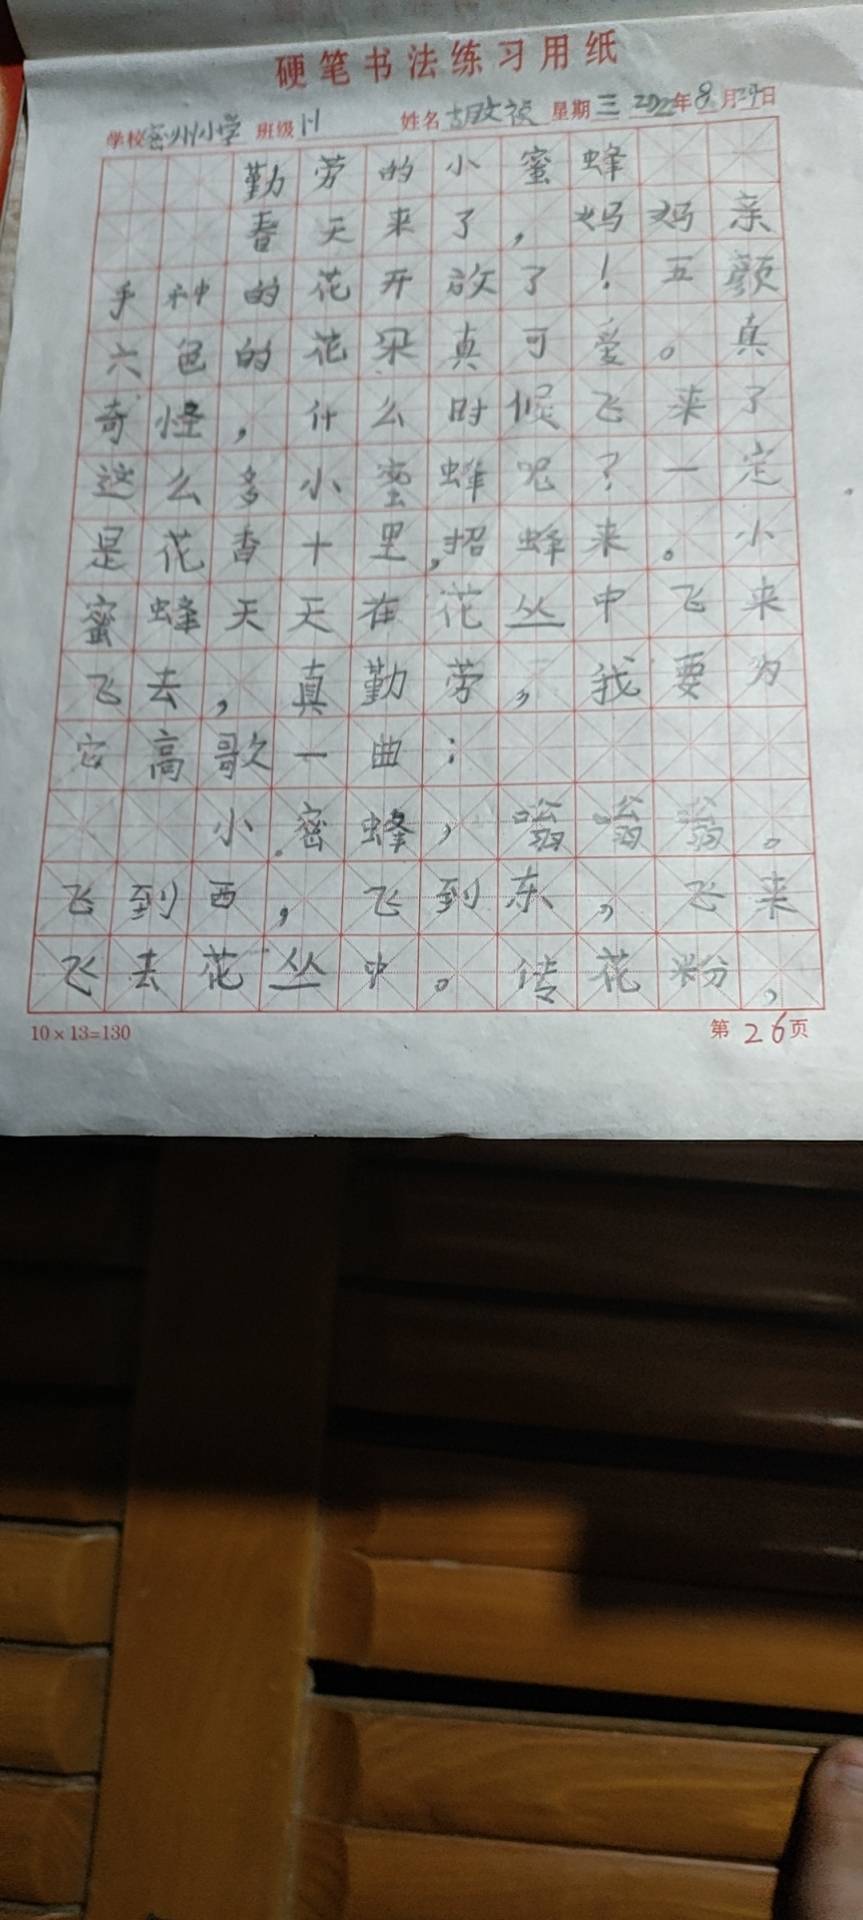 硬笔书法练习用纸
学校密州小学 班级 姓名胡文 星期三 2022年8月日
勤劳的小蜜蜂
春天来了，妈妈亲
手种的花开放了！五颜
六色的花朵真可爱。真
奇怪，什么时候飞来了
这么多小蜜蜂呢？一定
是花香十里，招蜂来。小
蜜蜂天天在花丛中飞来
飞去，真勤劳，我要为
它高歌一曲：
小密蜂，嗡嗡嗡。
飞到西，飞到东，飞来
飞去花丛中。传花粉，
10×13=130
第26页